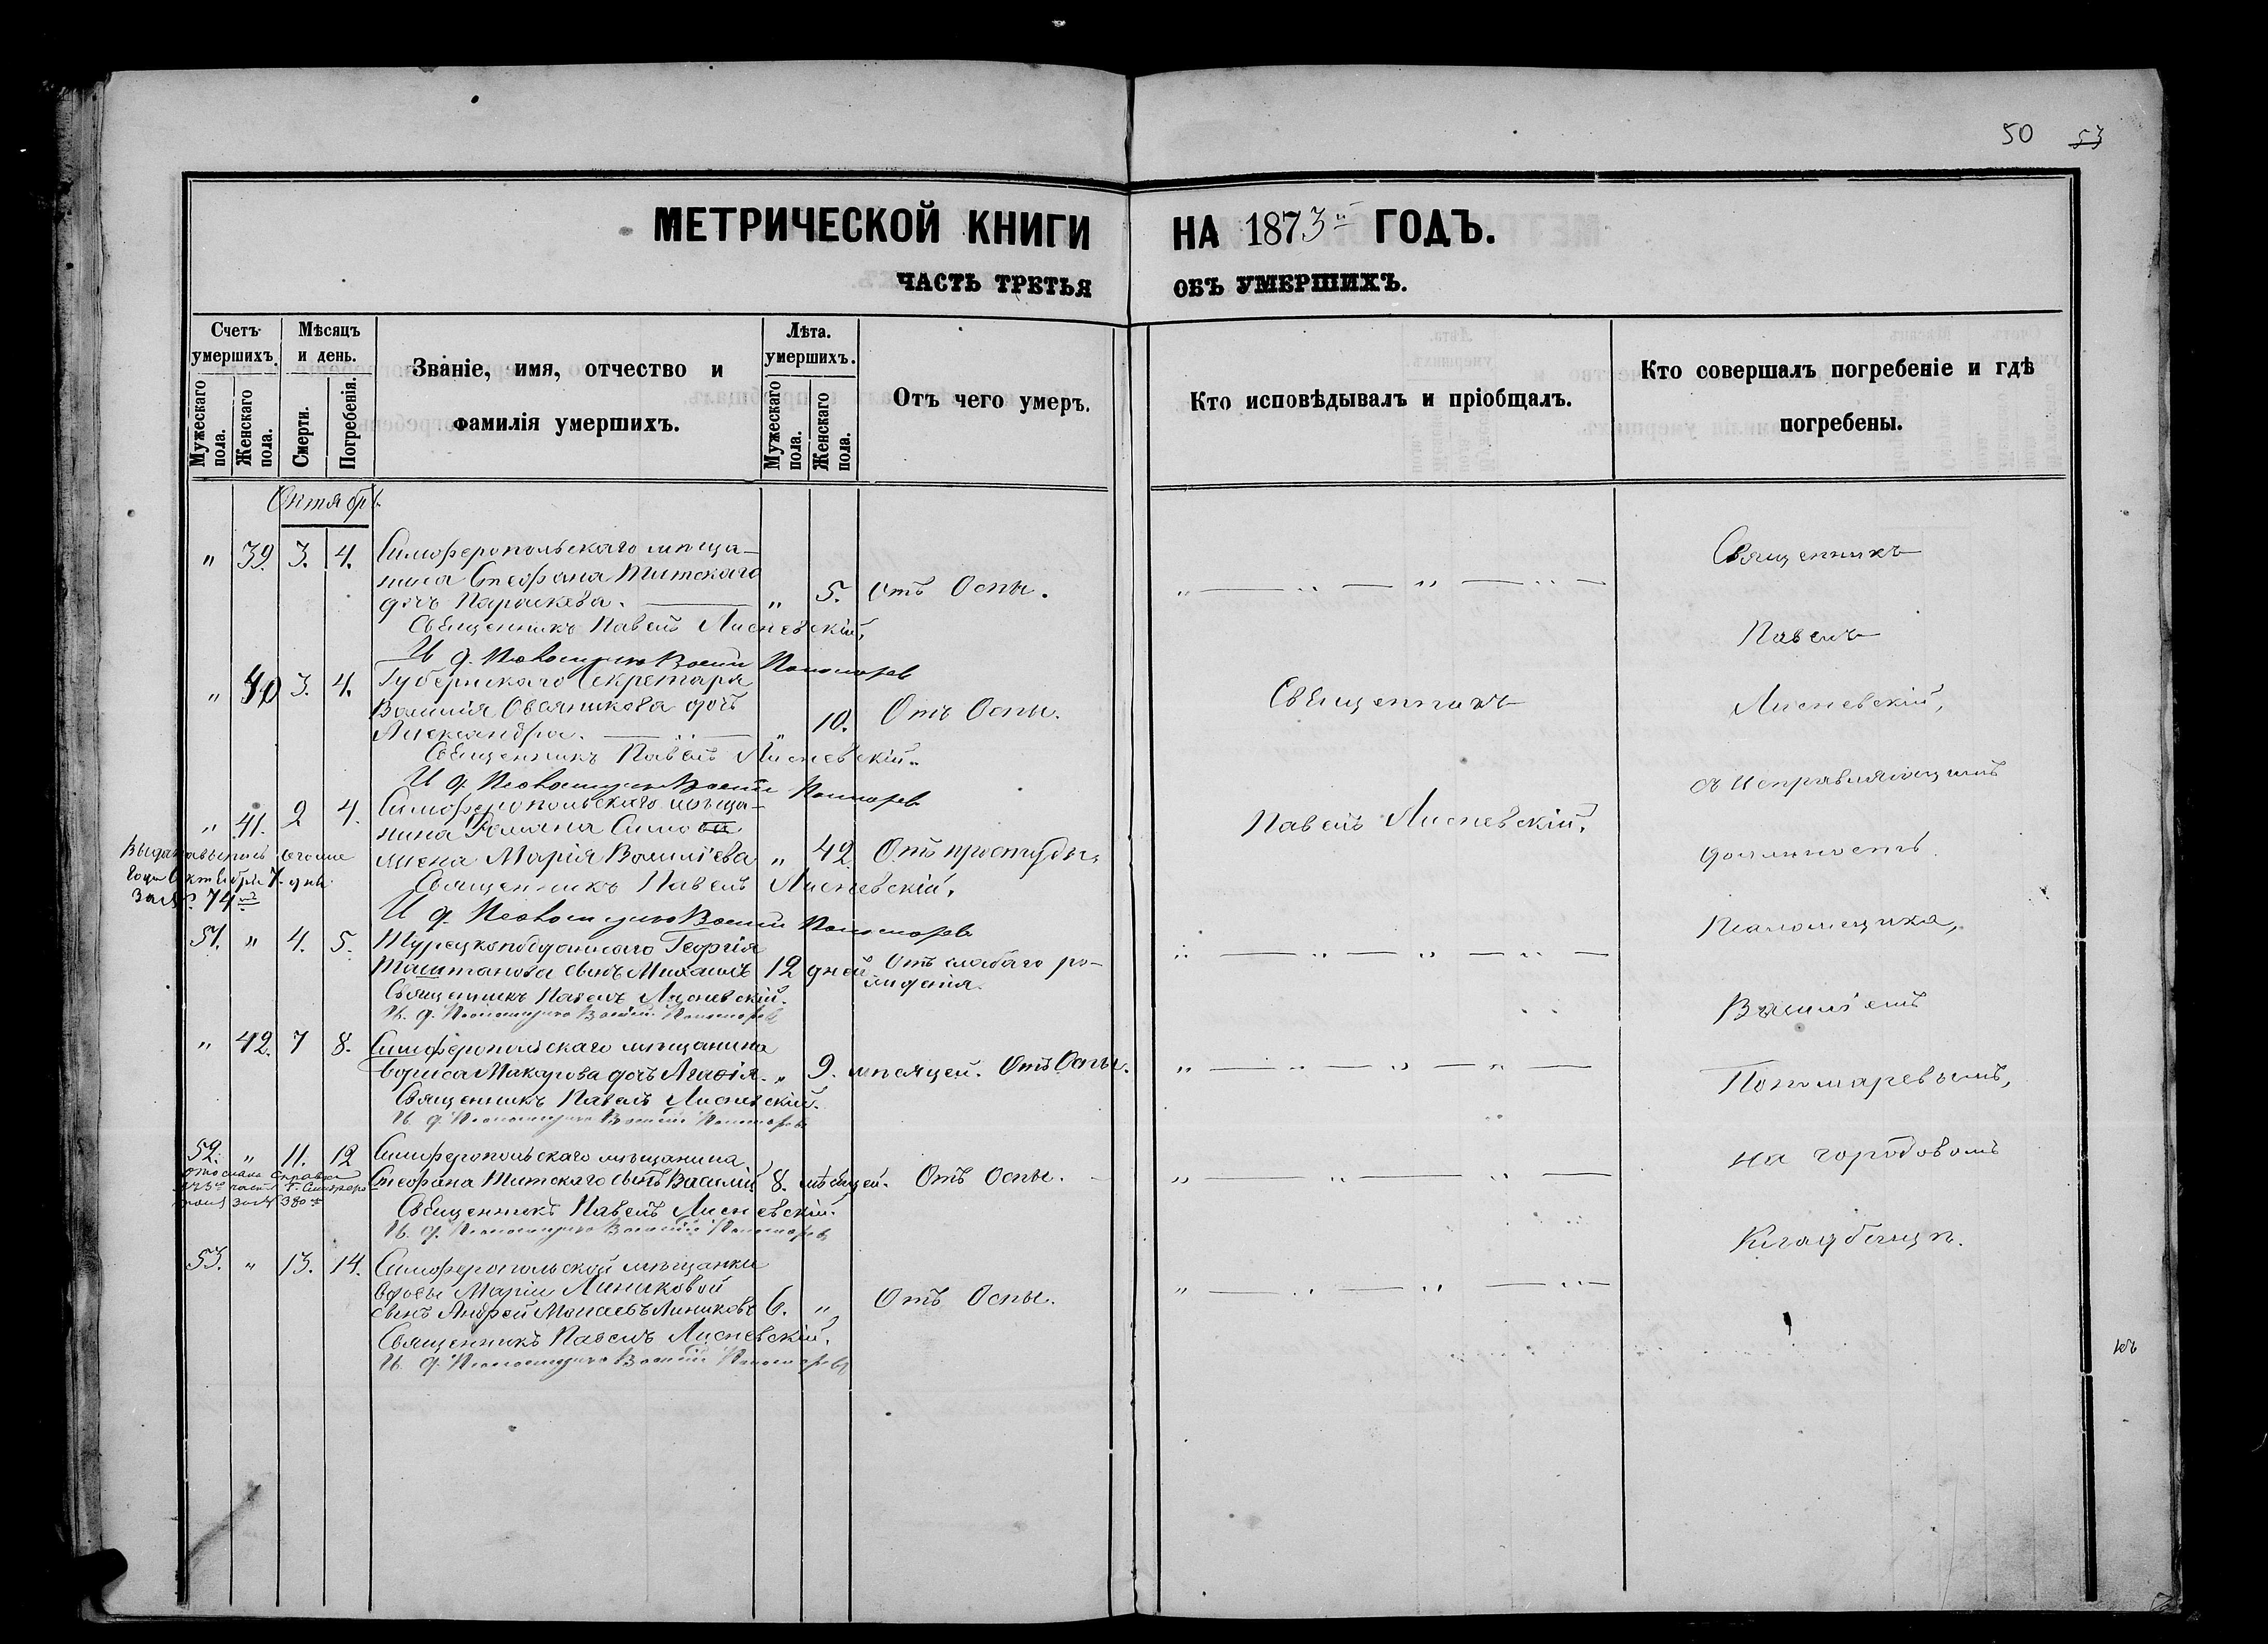 50 53
МЕТРИЧЕСКОЙ КНИГИ НА 1873й ГОДЪ.
ЧАСТЬ ТРЕТЬЯ ОБЪ УМЕРШИХЪ.
Счетъ умершихъ.
Мужескаго пола.
Женскаго пола.
Мѣсяцъ и день.
Смерти.
Погребенія.
Званіе, имя, отчество и
фамилія умершихъ.
Лѣта. умершихъ.
Мужескаго пола.
Женскаго пола.
Отъ чего умеръ.
Кто исповѣдывалъ и пріобщалъ.
Кто совершалъ погребеніе и гдѣ
погребены.
Октябрь
" 39. 3. 4. Симферопольскаго мѣща-
нина Стефана Титскаго
дочь Параскева. " 5. Отъ Оспы.
Священникъ Павелъ Лисневскій,
И д. Псаломщика Василій Пономарев
" 40 3. 4. Губернскаго Секретаря
Василія Овсяникова дочь
Александра. " 10. Отъ Оспы.
Священникъ Павелъ Лисневскій.
И д. Псаломщика Василій Пономарев
" 41. 2 4. Симферопольскаго мѣща-
нина Романа Симова
жена Марія Васильева " 42 Отъ простуды.
Священникъ Павелъ Лисневскій.
И д. Псаломщика Василій Пономарев
года Октября 7 дня
за № 74
51. " 4. 5. Турецкоподданнаго Георгія
сынъ Михаилъ 12 дней Отъ слабаго ро-
жденія.
Священникъ Павелъ Лисневскій.
И. д. Псаломщика Василій Пономарев
" 42. 7 8. Симферопольскаго мѣщанина
Бориса Макарова дочь Агафія. " 9. мѣсяцей. Отъ Оспы.
Священникъ Павелъ Лисневскій.
И. д. Псаломщика Василій Пономарев
52. " 11. 12 Симферопольскаго мѣщанина
Стефана Титскаго сынъ Василій 8. мѣсяцей. Отъ Оспы.
Священникъ Павелъ Лисневскій.
И. д. Псаломщика Василій Пономарев
53. " 13. 14. Симферопольской мѣщанки
вдовы Маріи Линиковой
сынъ Андрей Линиковъ 6. " Отъ Оспы.
Священникъ Павелъ Лисневскій.
И. д. Псаломщика Василій Пономарев
Священникъ
Павелъ Лисневскій.
Священникъ
Павелъ
Лисневскій,
съ Исправляющимъ
должность
Псаломщика,
Василіемъ
Пономаревымъ,
на городовомъ
Кладбищѣ.